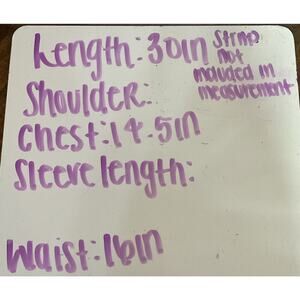 Length: 30in
Strap
not
included in
measurement
Shoulder:
Chest: 14.5in
Sleeve length:
Waist: 16in